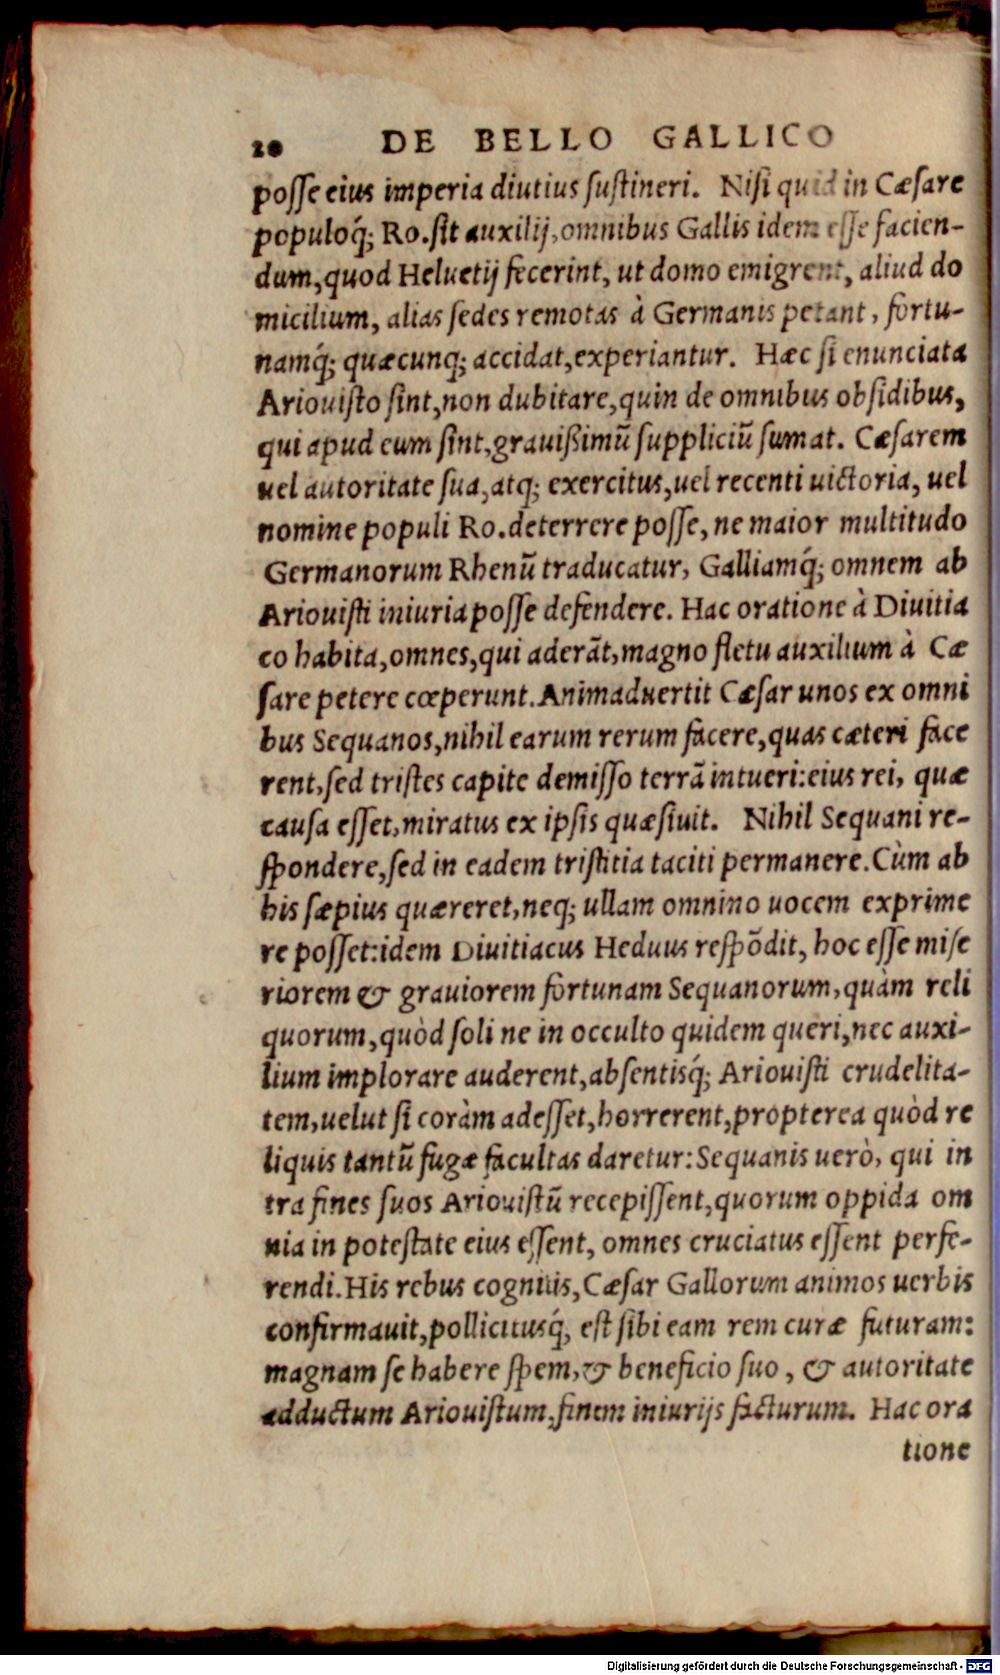 20 DE BELLO GALLICO
posse eius imperia diutius sustineri. Nisi quid in Cæsare
populoq́; Ro. sit auxilij, omnibus Gallis idem esse facien-
dum, quod Heluetij fecerint, ut domo emigrent, aliud do
micilium, alias sedes remotas à Germanis petant, fortu-
namq́; quæcunq; accidat, experiantur. Hæc si enunciata
Ariouisto sint, non dubitare, quin de omnibus obsidibus,
qui apud eum sint, grauißimū suppliciū sumat. Cæsarem
uel autoritate sua, atq; exercitus, uel recenti uictoria, uel
nomine populi Ro. deterrere posse, ne maior multitudo
Germanorum Rhenū traducatur, Galliamq́; omnem ab
Ariouisti iniuria posse defendere. Hac oratione à Diuitia
co habita, omnes, qui aderāt, magno fletu auxilium à Cæ
sare petere cœperunt. Animaduertit Cæsar unos ex omni
bus Sequanos, nihil earum rerum facere, quas cæteri face
rent, sed tristes capite demisso terrā intueri: eius rei, quæ
causa esset, miratus ex ipsis quæsiuit. Nihil Sequani re-
spondere, sed in eadem tristitia taciti permanere. Cùm ab
his sæpius quæreret, neq; ullam omnino uocem exprime
re posset: idem Diuitiacus Heduus respōdit, hoc esse mise
riorem & grauiorem fortunam Sequanorum, quàm reli
quorum, quòd soli ne in occulto quidem queri, nec auxi-
lium implorare auderent, absentisq́; Ariouisti crudelita-
tem, uelut si coràm adesset, horrerent, propterea quòd re
liquis tantū fugæ facultas daretur: Sequanis uerò, qui in
tra fines suos Ariouistū recepissent, quorum oppida om
nia in potestate eius essent, omnes cruciatus essent perfe-
rendi. His rebus cognitis, Cæsar Gallorum animos uerbis
confirmauit, pollicitusq́, est sibi eam rem curæ futuram:
magnam se habere spem, & beneficio suo, & autoritate
adductum Ariouistum, finem iniurijs facturum. Hac ora
tione
Digitalisierung gefördert durch die Deutsche Forschungsgemeinschaft - DFG